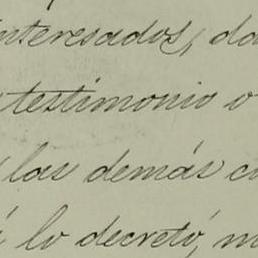 interesados, da
testimonio o
las demás c
lo decretó, m